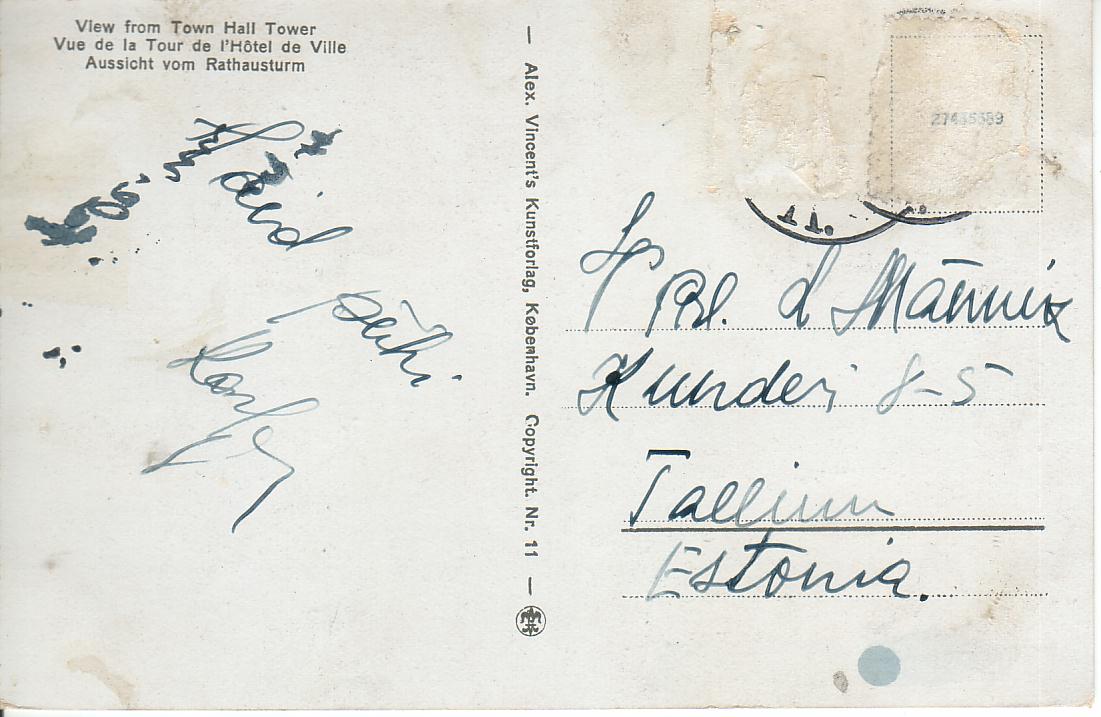 View from Town Hall Tower
Vue de la Tour de l'Hôtel de Ville
Aussicht vom Rathausturm
Häid pühi
— Alex. Vincent's Kunstforlag, København. Copyright. Nr. 11 —
27435389
11.
Prl. L Männik
Kunderi 8-5
Tallinn
Estonia.